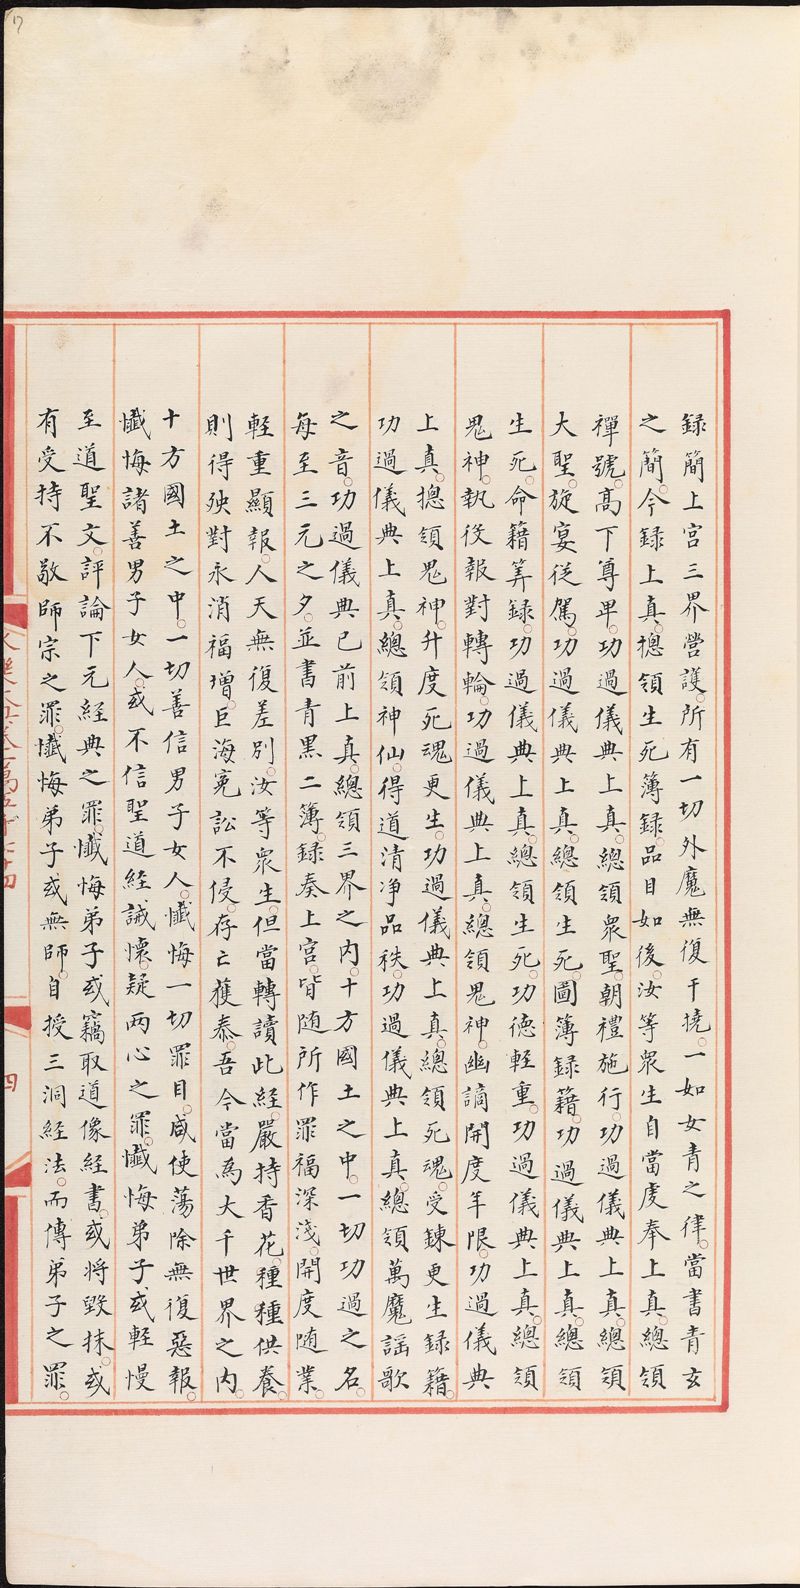 録簡上宫三界營護。所有一切外魔無復干撓。一如女青之律。當書青玄
之簡。今録上真。揔領生死簿録。品目如後。汝等衆生自當虔奉上真。總領
禪號。髙下尊卑。功過儀典上真。總領衆聖。朝禮施行。功過儀典上真。總領
大聖。旋宴従駕。功過儀典上真。總領生死。圖簿録籍。功過儀典上真。總領
生死。命籍筭録。功過儀典上真。總領生死。功徳輕重。功過儀典上真。總領
鬼神。執役報對轉輪。功過儀典上真。總領鬼神。幽謫開度年限。功過儀典
上真。揔領鬼神。升度死魂更生。功過儀典上真。總領死魂。受鍊更生録籍。
功過儀典上真。總領神仙。得道清净品秩。功過儀典上真。總領萬魔謡歌
之音。功過儀典已前上真。總領三界之内。十方國土之中。一切功過之名。
每至三元之夕。並書青黒二簿。録奏上宫。皆随所作罪福深淺。開度随業。
輕重顯報。人天無復差别。汝等衆生。但當轉讀此經。嚴持香花。種種供養。
則得殃對永消福増。巨海寃訟不侵。存亡獲泰。吾今當為大千世界之内。
十方國土之中。一切善信男子女人。懺悔一切罪目。咸使蕩除無復惡報。
懺悔諸善男子女人。或不信聖道經誡。懐疑两心之罪。懺悔弟子或輕慢
至道聖文。評論下元經典之罪。懺悔弟子或竊取道像經書。或將毀抹。或
有受持不敬師宗之罪。懺悔弟子或無師。自授三洞經法。而傳弟子之罪。
四
17